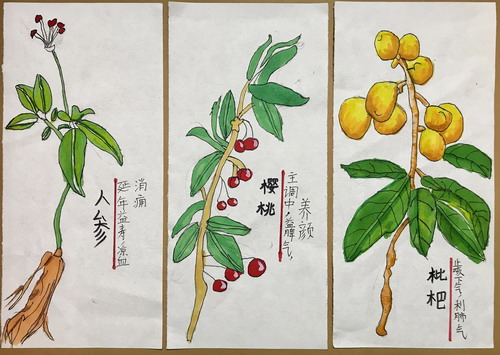 人参
延年益寿,凉血
消痈
樱桃
主调中,益脾气,
养颜
枇杷
止渴下气,利肺气